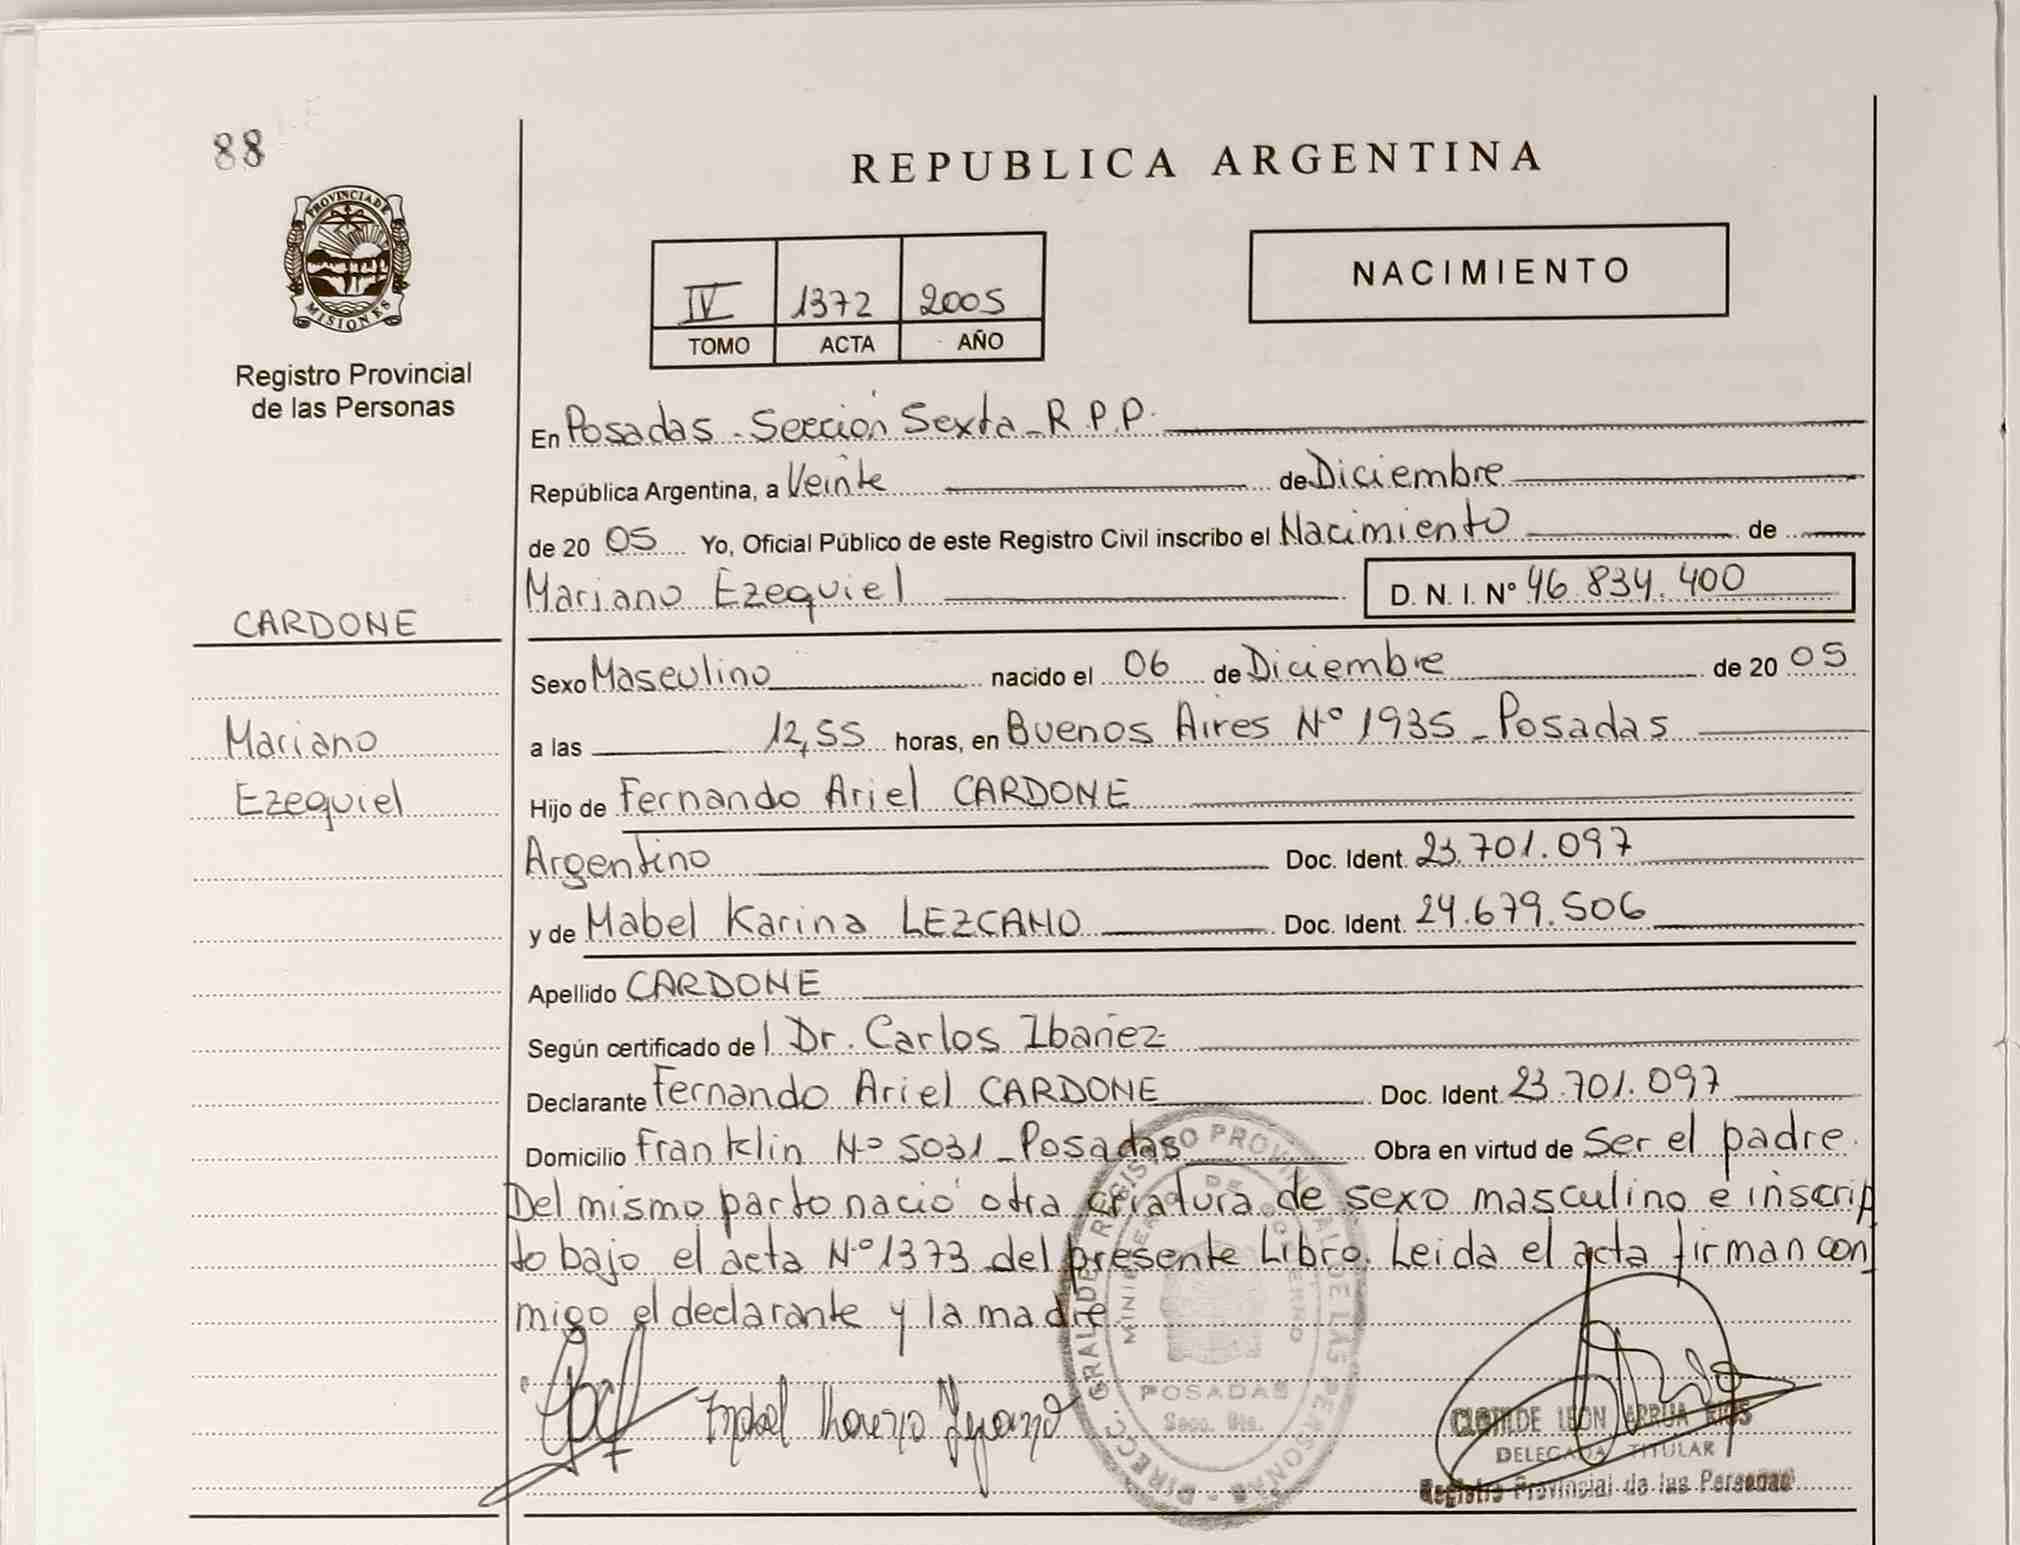 88
REPUBLICA ARGENTINA
PROVINCIA DE
MISIONES
Registro Provincial
de las Personas
IV 1372 2005
TOMO ACTA AÑO
NACIMIENTO
En Posadas - Sección Sexta - R.P.P.
República Argentina, a Veinte de Diciembre
de 20 05 Yo, Oficial Público de este Registro Civil inscribo el Nacimiento de
Mariano Ezequiel D. N. I. Nº 46.834.400
CARDONE
Sexo Masculino nacido el 06 de Diciembre de 20 05
Mariano
a las 12,55 horas, en Buenos Aires Nº 1935 - Posadas
Ezequiel
Hijo de Fernando Ariel CARDONE
Argentino Doc. Ident. 23.701.097
y de Mabel Karina LEZCANO Doc. Ident. 24.679.506
Apellido CARDONE
Según certificado de l Dr. Carlos Ibañez
Declarante Fernando Ariel CARDONE Doc. Ident. 23.701.097
Domicilio Franklin Nº 5031 - Posadas Obra en virtud de Ser el padre.
Del mismo parto nació otra criatura de sexo masculino e inscrip
to bajo el acta Nº 1373 del presente Libro. Leida el acta firman con
migo el declarante y la madre
DIRECC. GRAL DE REGISTRO PROVINCIAL DE LAS PERSONAS
MINISTERIO DE GOBIERNO
POSADAS
Secc. 6ta.
CLOTILDE LEON ARRUA RIOS
DELEGADA TITULAR
Registro Provincial de las Personas